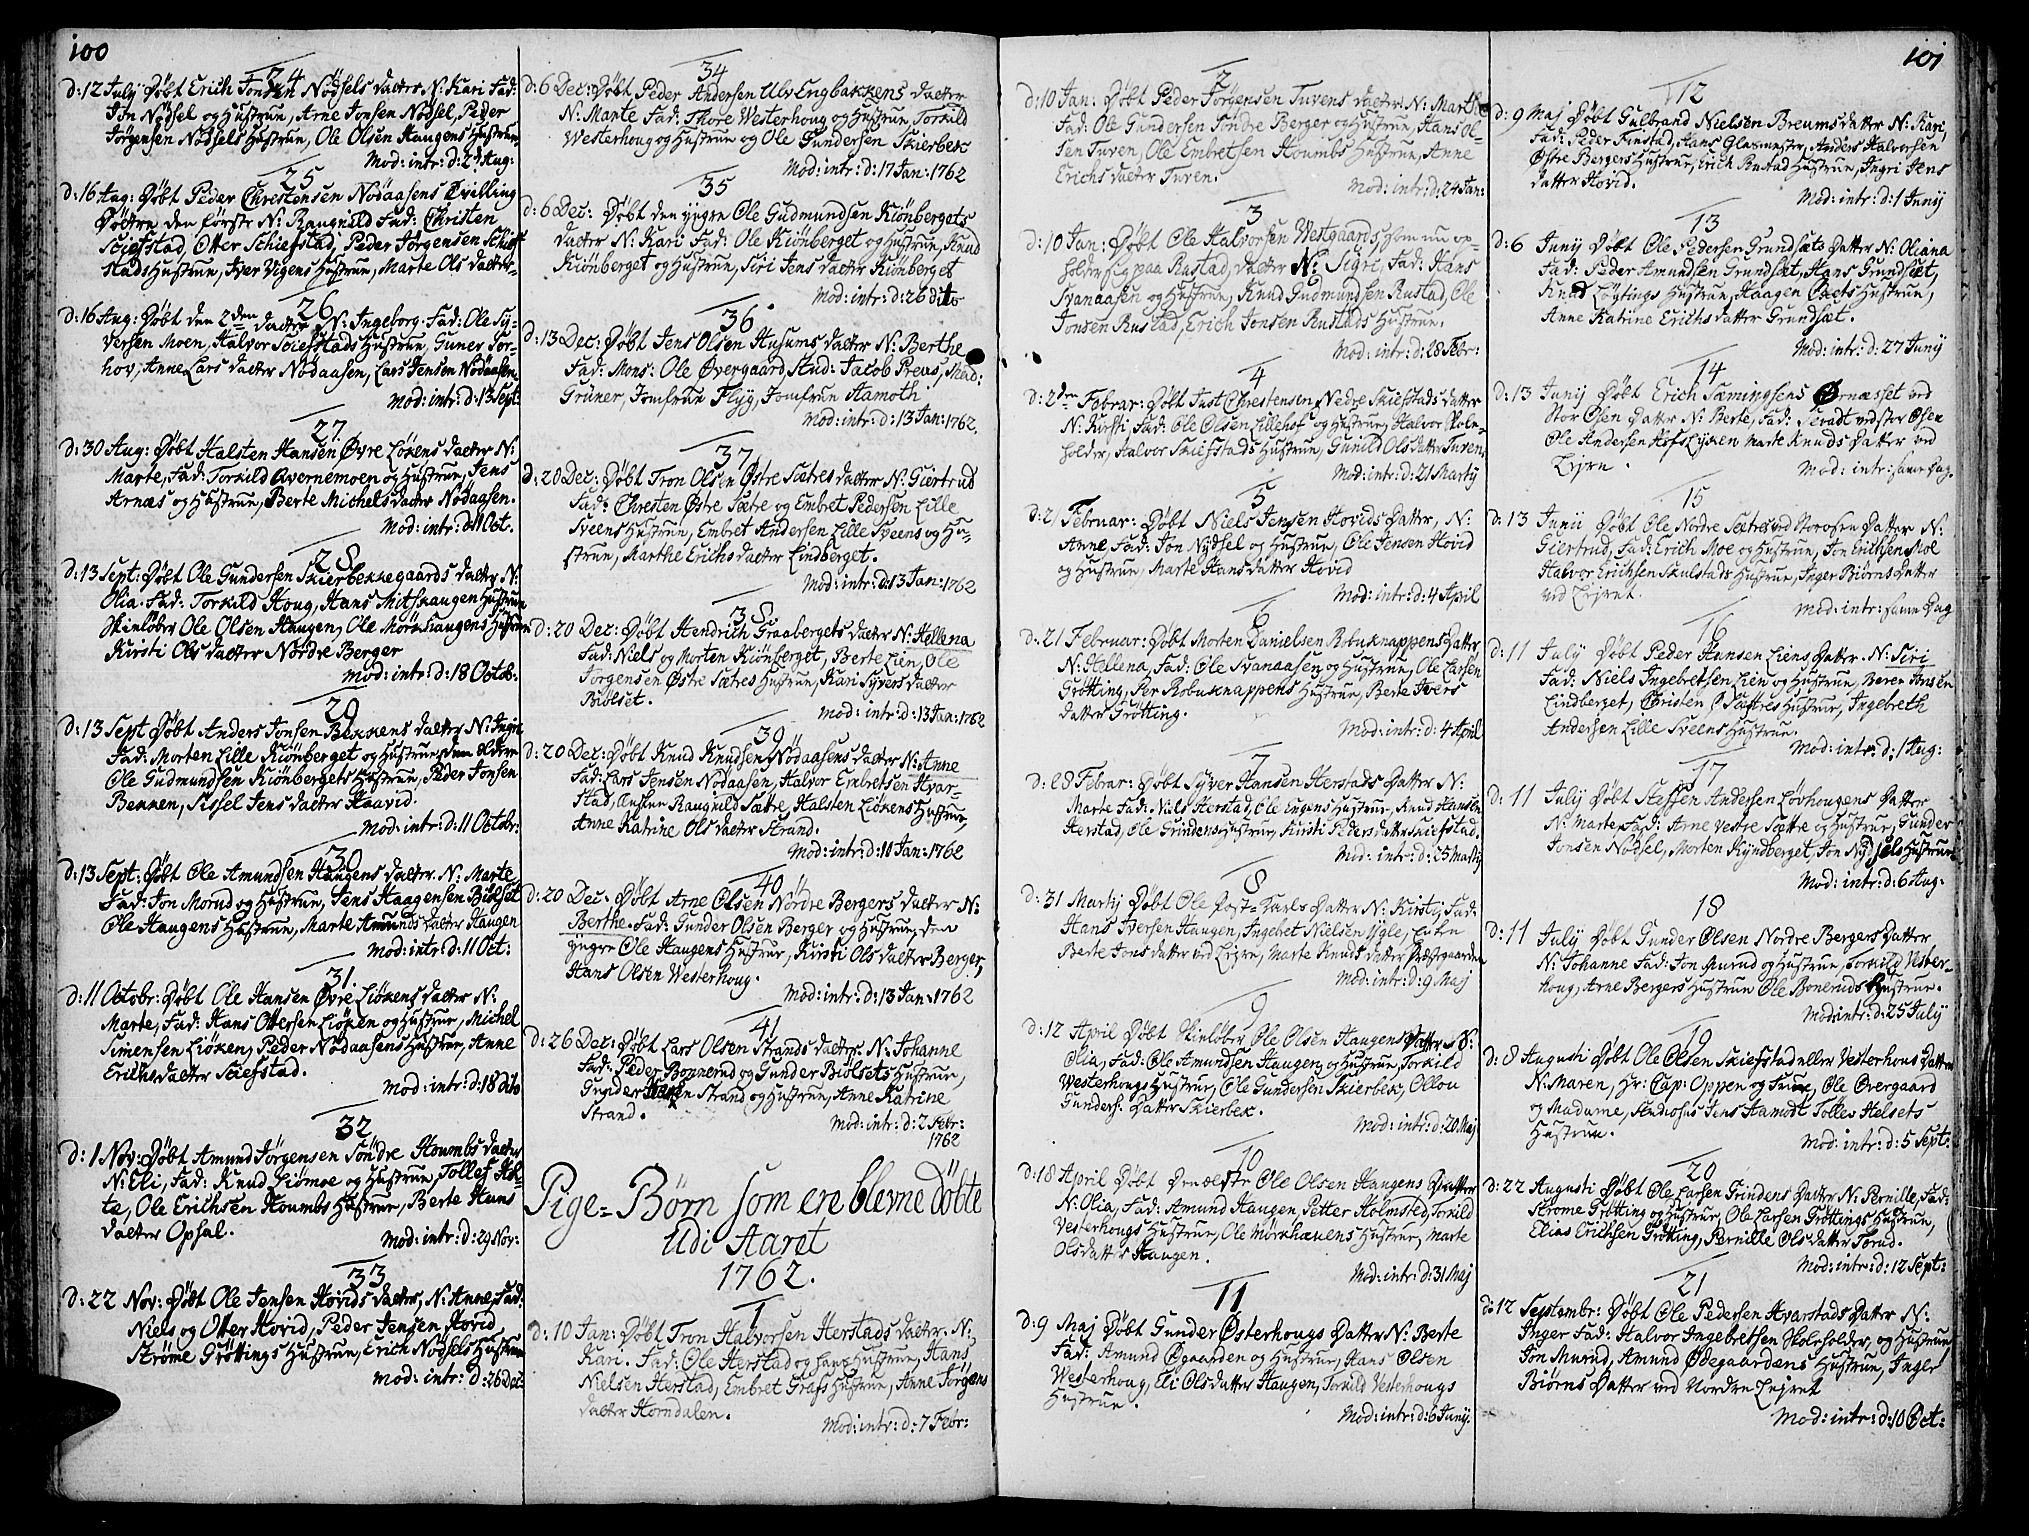 100
24
d: 12 July Døbt Erich Jonsen Nødsels datter N: Kari Fad:
Jon Nødsel og Hustrue, Arne Jonsen Nødsel, Peder
Jørgensen Nødsels Hustrue, Ole Olsen Haugens Hustrue
Mod: intr: d: 2 Aug:
25
d: 16 Aug: Døbt Peder Chrestensen Nodaasens Tvilling
Døttre den første N: Raugnild Fad: Christen
Sciefstad, Otter Schiefstad, Peder Jörgensen Schief
stads Hustrue, Iver Vigens Hustrue, Marte Ols datter
26
d: 16 Aug: Døbt den 2den datter N: Ingeborg. Fad: Ole Sy-
versen Moen, Halvor Sciefstads Hustrue, Guner Tor-
hov, Anne Lars datter Nødaasen, Lars Jensen Nødaasen.
Mod: intr: d: 13 Sept:
27
d: 30 Aug: Døbt Halsten Hansen Øvre Løkens datter N:
Marte, Fad: Torkild Qvernemoen og Hustrue, Jens
Arnæs og Hustrue, Berte Michels datter Nødaasen.
Mod: intr: d: 11 Oct.
28
d: 13 Sept: Døbt Ole Gundersen Skierbekkegaards datter N:
Olia. Fad: Torkild Houg, Hans Mitskaugen Hustrue
Skinløber Ole Olsen Haugen, Ole Mørkhaugens Hustrue
Kirsti Ols datter Nørdre Berger
Mod: intr: d: 18 Octob:
29
d: 13 Sept Døbt Anders Jonsen Bekkens datter N: Ingri
Fad: Morten Lille Kiönberget og Hustrue, den eldre
Ole Gudmundsen Kiönbergets Hustrue, Peder Jonsen
Bekken, Sissel Jens datter Haavid.
Mod: intr: d: 11 Octobr:
30
d: 13 Sept: Døbt Ole Amundsen Haugens datter. N: Marte
Fad: Jon Morud og Hustrue, Jens Haagensen Biölset
Ole Haugens Hustrue, Marte Amunds datter Haugen
Mod: intr: d: 11 Oct:
31.
d: 11 Octobr: Døbt Ole Hansen Øvre Liökens datter N:
Marte, Fad: Hans Ottersen Liöken og Hustrue, Michel
Simensen Liöken, Peder Nødaasens Hustrue, Anne
Erichs datter Sciefstad.
Mod: intr: d: 18 dito
32
d: 1 Nov: Døbt Amund Jörgensen Söndre Houmbs datter
N: Eli, Fad: Knud Liömoe og Hustrue, Tollef Hol-
te, Ole Erichsen Houmbs Hustrue, Berte Hans
datter Opsal.
Mod: intr: d: 29 Nov:
33
d: 22 Nov: Døbt Ole Jensen Hovids datter, N: Anne, Fad:
Niels og Otter Hovid, Peder Jensen Hovid
Ströme Gröttings Hustrue, Erich Nødsels Hustrue
Mod: intr: d: 26 Dec:
34
d: 6 Dec: Døbt Peder Andersen Ulv Engbakkens datter
N: Marte Fad: Thore Westerhoug og Hustrue Torkild
Westerhoug og Hustrue og Ole Gundersen Skierbec
Mod: intr: d: 17 Jan: 1762
35
d: 6 Dec: Døbt den yngre Ole Gudmundsen Kiönbergets
datter N: Kari Fad: Ole Kiönberget og Hustrue, Knud
Kiönberget og Hustrue, Siri Jens datter Kiönberget
Mod: intr: d: 26 dito
36
d: 13 Dec: Døbt Jens Olsen Husums datter N: Berthe
Fad: Mons: Ole Øvergaard, Stud: Jacob Preus, Mad:
Grüner, Jomfrue Flyg, Jomfrue Hamoth
Mod: intr: d: 13 Jan: 1762.
37
d: 20 Dec: Døbt Tron Olsen Østre Sætres datter N: Giertrud
Fad: Chresten Østre Sætre og Embret Pedersen Lille
Sveens Hustrue, Embret Andersen Lille Sveens og Hu-
strue, Marthe Erichs datter Lindberget.
Mod: intr: d: 13 Jan: 1762
38
d: 20 Dec: Døbt Hendrich Graabergets datter N: Hellena
Fad: Niels og Morten Kiönberget, Berte Lien, Ole
Jørgensen Østre Sætres Hustrue, Kari Syvers datter
Biölset.
Mod: intr: d: 13 Jan: 1762
39
d: 20 Dec: Døbt Knud Knudsen Nödaasens datter N: Anne
Fad: Lars Jensen Nodaasen, Halvor Embretsen Hvar-
stad, Raugnild Sætre, Halsten Liökens Hustrue,
Anne Katrine Ols datter Strand.
Mod: intr: d: 10 Jan: 1762
40
d: 20 Dec: Døbt Arne Olsen Nördre Bergers datter N:
Berthe. Fad: Gunder Olsen Berger og Hustrue, den
yngre Ole Haugens Hustrue, Kirsti Ols datter Berger,
Hans Olsen Westerhoug.
Mod: intr: d: 13 Jan: 1762
41
d: 26 Dec: Døbt Lars Olsen Strands datter N: Johanne
Fad: Peder Bonnerud og Gunder Biölsets Hustrue,
Gunder Strand og Hustrue, Anne Katrine
Strand.
Mod: intr: d: 2 Febr:
1762
Pige=Børn som ere blevne döbte
Udi Aaret
1762.
1
d: 10 Jan: Døbt Tron Halvorsen Herstads datter. N:
Kari. Fad: Ole Herstad og hans Hustrue, Hans
Nielsen Herstad, Embret Grafs Hustrue, Anne Jörgens
datter Horndalen.
Mod: intr: d: 7 Febr:
101
2
d: 10 Jan: Døbt Peder Jörgensen Tuvens datter. N: Marthe
Fad: Ole Gundersen Söndre Berger og Hustrue, Hans Ol-
sen Tuven, Ole Embretsen Houmbs Hustrue, Anne
Erichs datter Tuven.
Mod: intr: d: 24 Jan:
3
d: 10 Jan: Døbt Ole Halvorsen Westgaards som nu op-
holder sig paa Rustad, datter N: Sigri, Fad: Hans
Svanaasen og Hustrue, Knud Gudmundsen Rustad, Ole
Jonsen Rustad, Erich Jonsen Rustads Hustrue.
Mod: intr: d: 28 Febr:
4
d: 2den Februar: Døbt Just Chrestensen Nedre Skiefstads datter
N: Kirsti, Fad: Ole Olsen Lillehof og Hustrue, Halvor Hole-
holder, Halvor Skiefstads Hustrue, Gunild Ols datter Tuven.
Mod: intr: d: 21 Martij
5
d: 21 Februar: Døbt Niels Jensen Hovids Datter, N:
Anne, Fad: Jon Nydsel og Hustrue, Ole Jensen Hovid
og Hustrue, Marte Hans datter Hovid
Mod: intr: d: 4 April
6
d: 21 Februar: Døbt Morten Danielsen Robuknappens Datter,
N: Hellena, Fad: Ole Svanaasen og Hustrue, Ole Larsen
Gröтting, Per Robuknappens Hustrue, Berte Ivers
datter Grötting.
Mod: intr: d: 4 April
7
d: 28 Febuar: Døbt Syver Hansen Herstads Datter N:
Marte Fad: Niels Herstad, Ole Engens Hustrue, Knud Hansen
Herstad, Ole Grindens Hustrue, Kirsti Peders datter Skiefstad.
Mod: intr: d: 25 Martij
8
d: 31 Martij Døbt Ole Post-Karls Datter N: Kirsti, Fad:
Hans Iversen Haugen, Ingebret Nielsen Ygle,
Berte Jons datter ved Lejre, Marte Knuds datter Præstgaarden
Mod: intr: d: 9 Maj
9
d: 12 April Døbt Skinløber Ole Olsen Haugens Datter N:
Olia, Fad: Ole Amundsen Haugen og Hustrue, Torkild
Westerhougs Hustrue, Ole Gundersen Skierbek, Ollou
Gunders: Datter Skierbek.
Mod: intr: d: 20 Maj
10
d: 18 April Døbt Den ældste Ole Olsen Haugens Datter
N: Olia, Fad: Amund Haugen, Petter Holmsted, Torkild
Vesterhougs Hustrue, Ole Mörkhauens Hustrue, Marte
Olsdatter Haugen.
Mod: intr: d: 31 Maj
11
d: 9 Maj Døbt Gunder Østerhougs Datter N: Berte
Fad: Amund Øgaarden og Hustrue, Hans Olsen
Westerhoug, Eli Olsdatter Haugen, Torkild Vesterhougs
Hustrue.
Mod: intr: d: 6 Junij.
12
d: 9 Maj Døbt Gulbrand Nielsen Breums datter N: Kari,
Fad: Peder Finstad, Hans Glasmester, Anders Halvorsen
Østre Bergers Hustrue, Erich Rustad Hustrue, Ingri Jens
datter Hovid.
Mod: intr: d: 1 Junij
13
d: 6 Junij Døbt Ole Pedersen Grundsets Datter N: Oliana
Fad: Peder Amundsen Grundset, Hans Grundset,
Knud Løytings Hustrue, Haagen Øxets Hustrue,
Anne Katrine Erichs datter Grundset.
Mod: intr: d: 27 Junij
14
d: 13 Junij Døbt Erich Sæmingsens Ørnæsset ved
Stor Øsen Datter N: Berte, Fad: ved stor Øsen
Ole Andersen Hofs Marte Knuds Datter ved
Lejre.
Mod: intr: same Dag.
15
d: 13 Junii Døbt Ole Nordre Sætre ved Storosen Datter N:
Giertrud, Fad: Erich Moe og Hustrue, Jon Erichsen Moe
Halvor Erichsen Skulstads Hustrue, Inger Biörns Datter
ved Lejret.
Mod: intr: same Dag
16
d: 11 July Døbt Peder Hansen Liens Datter. N: Siri
Fad: Niels Ingebretsen Lien og Hustrue, Beren Jonsen
Lindberget, Christen Ø Sættres Hustrue, Ingebreth
Andersen Lille Sveens Hustrue.
Mod: intr: d: 1 Aug:
17
d: 11 July Døbt Steffen Andersen Lövhougens Datter
N: Marte, Fad: Arne Vestre Sættre og Hustrue, Gunder
Jonsen Nødsel, Morten Kyndberget, Jon Nydsels Hustrue
Mod: intr: d: 6 Aug.
18
d: 11 July Døbt Gunder Olsen Nordre Bergers Datter
N: Johanne Fad: Jon Murud og Hustrue, Torkild Vester-
houg, Arne Bergers Hustrue Ole Boneruds Hustrue.
Mod: intr: d: 25 July
19
d: 8 Augusti Døbt Ole Olsen Skiefstad eller Vesterhous Datter
N: Maren, Hr: Cap: Oppen og Frue, Ole Overgaard
og Madame, Studiosus Jens Hamodt, Tolles Helsets
Hustrue.
Mod: intr: d: 5 Sept:
20
d: 22 Augusti Døbt Ole Larsen Grindens Datter N: Pernille, Fad:
Strøme Grötting og Hustrue, Ole Larsen Gröttings Hustrue,
Elias Erichsen Grötting, Pernille Ols datter Torud.
Mod: intr: d: 12 Sept:
21
d: 12 Septembr: Døbt Ole Pedersen Hvarstads Datter N:
Inger Fad: Halvor Ingebretsen Holeholder, og Hustrue
Jon Murud, Amund Ødegaardens Hustrue, Inger
Biørns Datter ved Nordre Lejret
Mod: intr: d: 10 Oct: